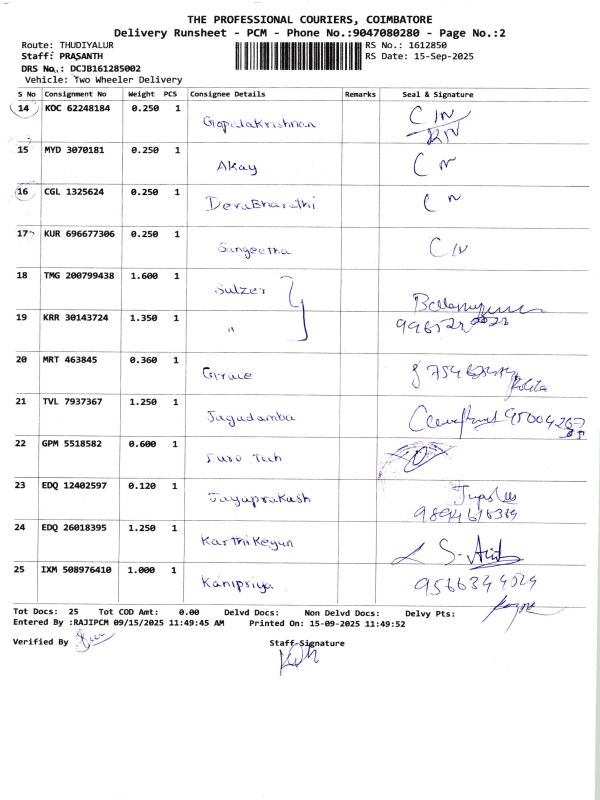 THE PROFESSIONAL COURIERS, COIMBATORE
Delivery Runsheet - PCM - Phone No.:9047080280 - Page No.:2
Route: THUDIYALUR RS No.: 1612850
Staff: PRASANTH RS Date: 15-Sep-2025
DRS No.: DCJB161285002
Vehicle: Two Wheeler Delivery
S No Consignment No Weight PCS Consignee Details Remarks Seal & Signature
14 KOC 62248184 0.250 1 Gopalakrishnan C/N
15 MYD 3070181 0.250 1 Akay C N
16 CGL 1325624 0.250 1 DevaBharathi C N
17 KUR 696677306 0.250 1 Sangeetha C/N
18 TMG 200799438 1.600 1 Sulzer
19 KRR 30143724 1.350 1 "
20 MRT 463845 0.360 1 Grace
21 TVL 7937367 1.250 1 Jagadamba
22 GPM 5518582 0.600 1 Tech
23 EDQ 12402597 0.120 1 Jayaprakash
24 EDQ 26018395 1.250 1 Karthikeyan
25 IXM 508976410 1.000 1 Kanipriya
Tot Docs: 25 Tot COD Amt: 0.00 Delvd Docs: Non Delvd Docs: Delvy Pts:
Entered By :RAJIPCM 09/15/2025 11:49:45 AM Printed On: 15-09-2025 11:49:52
Verified By Staff-Signature